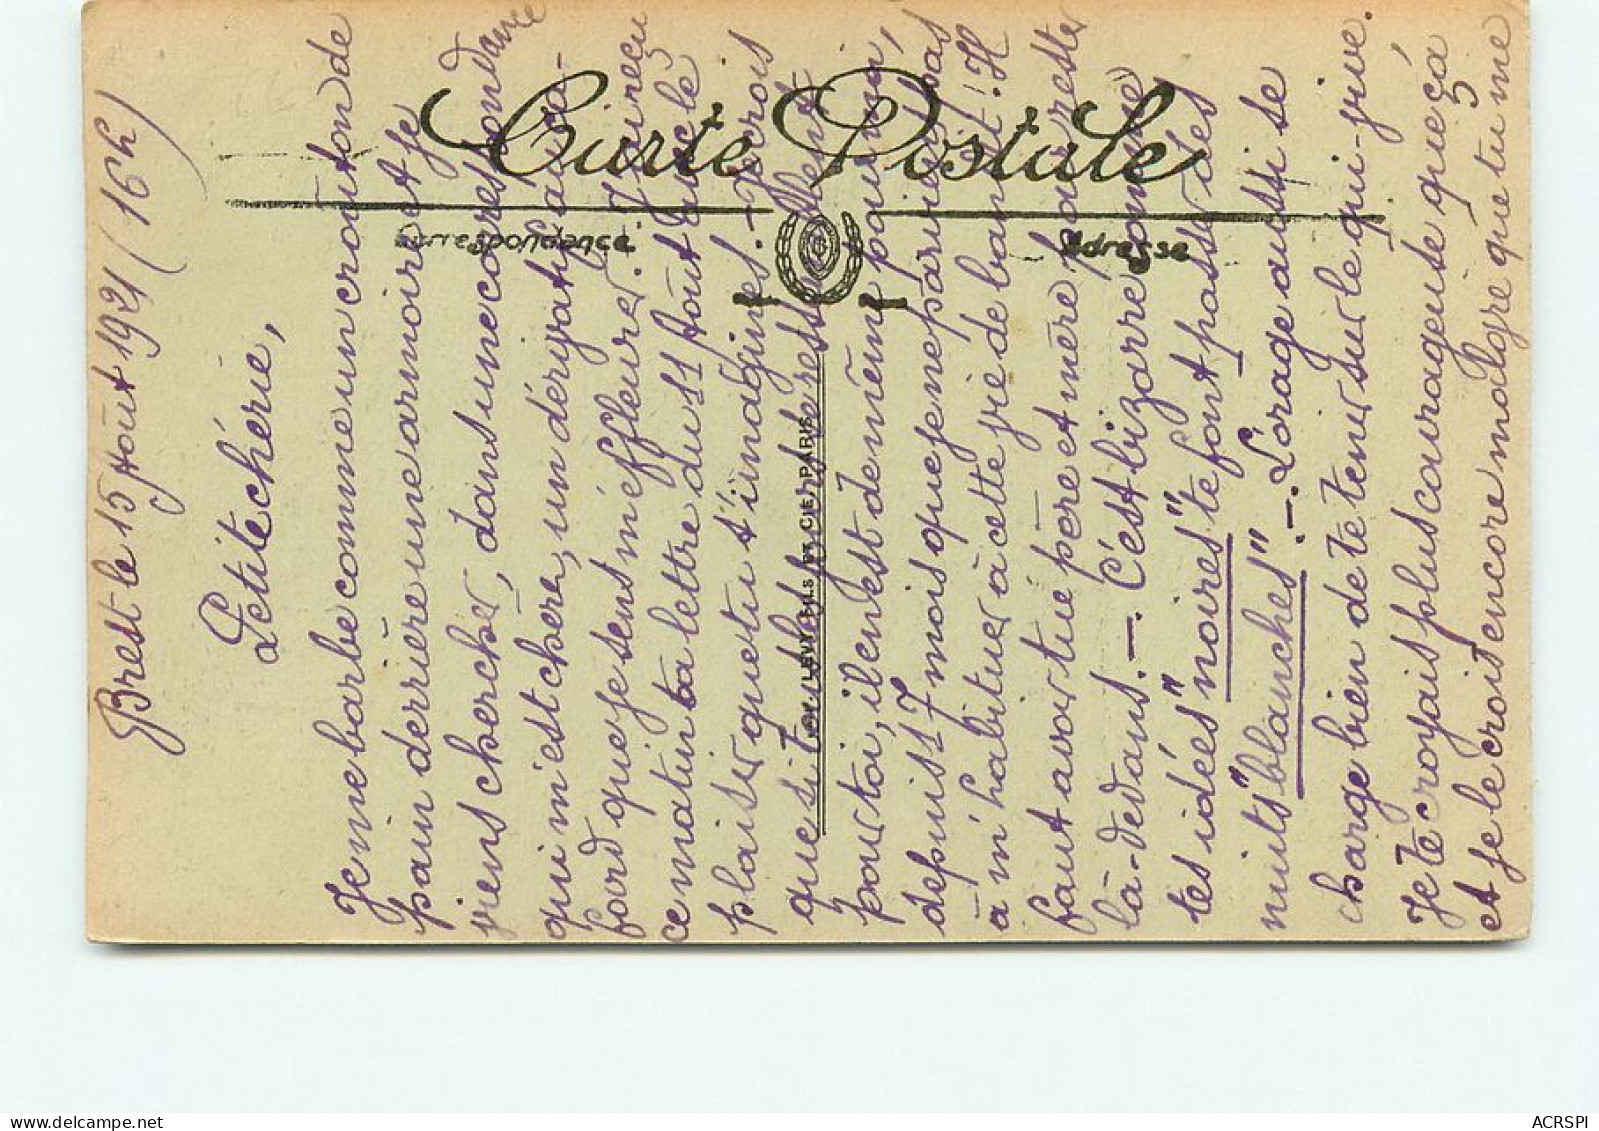 Carte Postale
Correspondance
Adresse
LEVY FILS ET CIE, PARIS
Brest le 15 Août 1921 (16h)
Petite chérie,
Je me barbe comme un croûton de
pain derrière une armoire et je
viens chercher, dans une correspondance
qui m'est chère, un dérivatif au ca-
fard que je sens m'éffleurer. J'ai reçu
ce matin ta lettre du 11 Août avec le
plaisir que tu t'imagines. - Je crois
que si les jours passent lentement
pour toi, il en est de même pour moi,
depuis 17 mois que je ne parviens pas
à m'habituer à cette vie de banni. Il
faut avoir tué père et mère pour rester
là-dedans. - C'est bizarre comme
tes idées "noires" te font passer des
nuits "blanches". - L'orage aussi se
charge bien de te tenir sur le qui-vive.
Je te croyais plus courageuse que ça
et je le crois encore malgré que tu me
ACRSPI